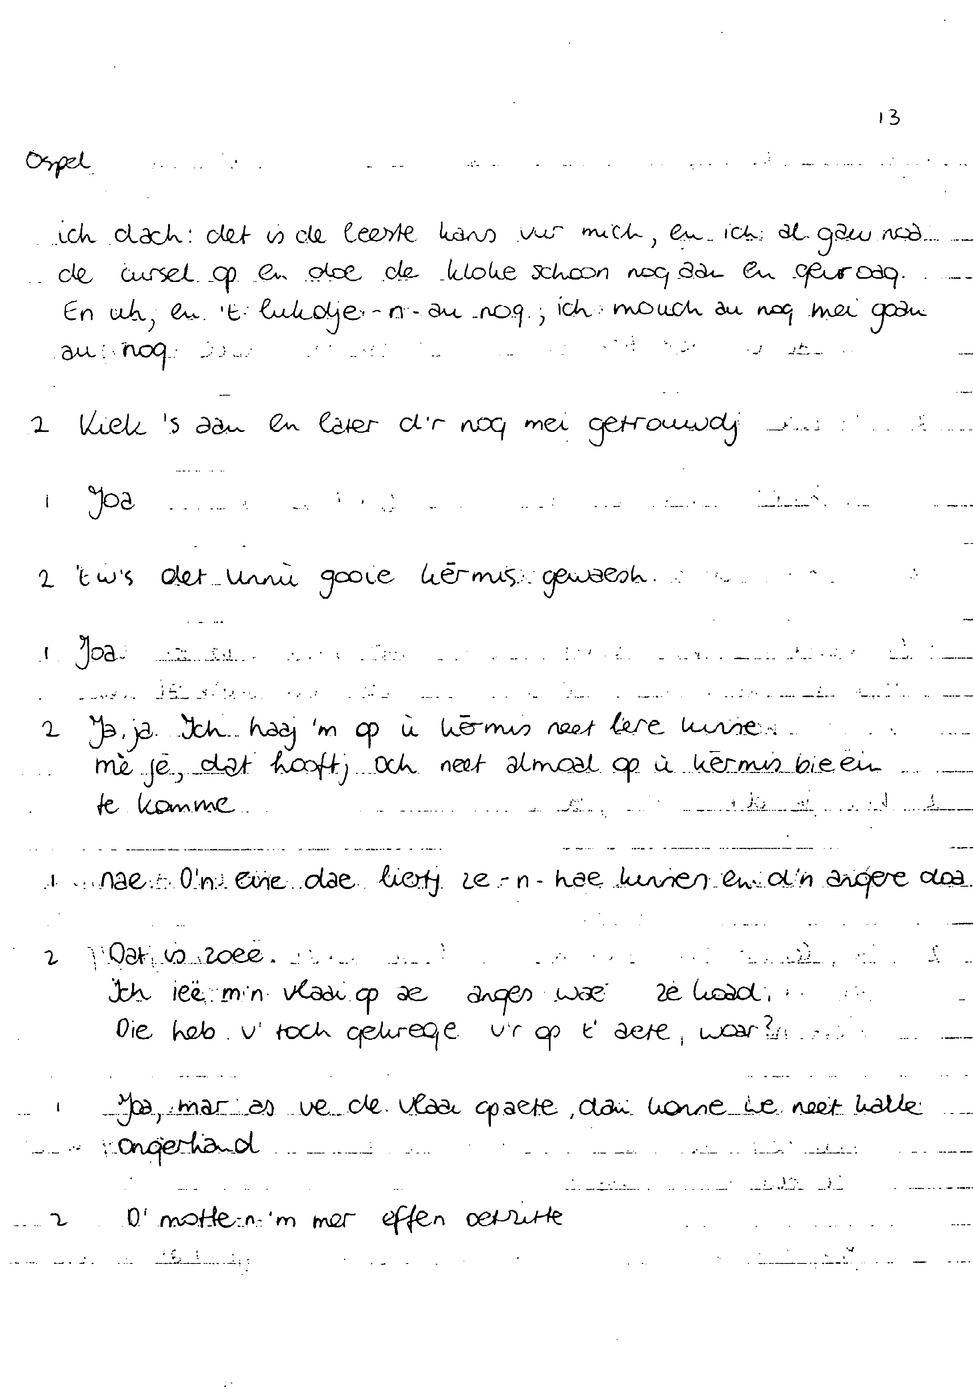 13
Ospel
ich dach: det is de leeste kans vur mich, en ich al gau noa
de cursel op en doe de kloke schoon nog aan en geuroag.
En uh, en 't lukdje-n-au nog, ich mouch au nog mei goan
au nog
2 Kiek 's aan en later d'r nog mei getrouwdj
1 Joa
2 't w's det unnù gooie kērmis gewaesh.
1 Joa
2 Ja, ja. Ich haaj 'm op ù kērmis neet lere kinne
mè jē, dat hooftj och neet almoal op ù kērmis bieëin
te komme
1 nae. D'n eine dae liertj ze-n-hae kinnen en d'n angere doa
2 Dat is zoeë.
Ich ieë m'n vlaai op ae anges wae ze koad.
Die heb v' toch gekrege v'r op t' aete, woar?
1 Joa, mar as ve de vlaai opaete, dan konne we neet kalle
ongerhand
2 D' motte-n-'m mer effen oetzitte